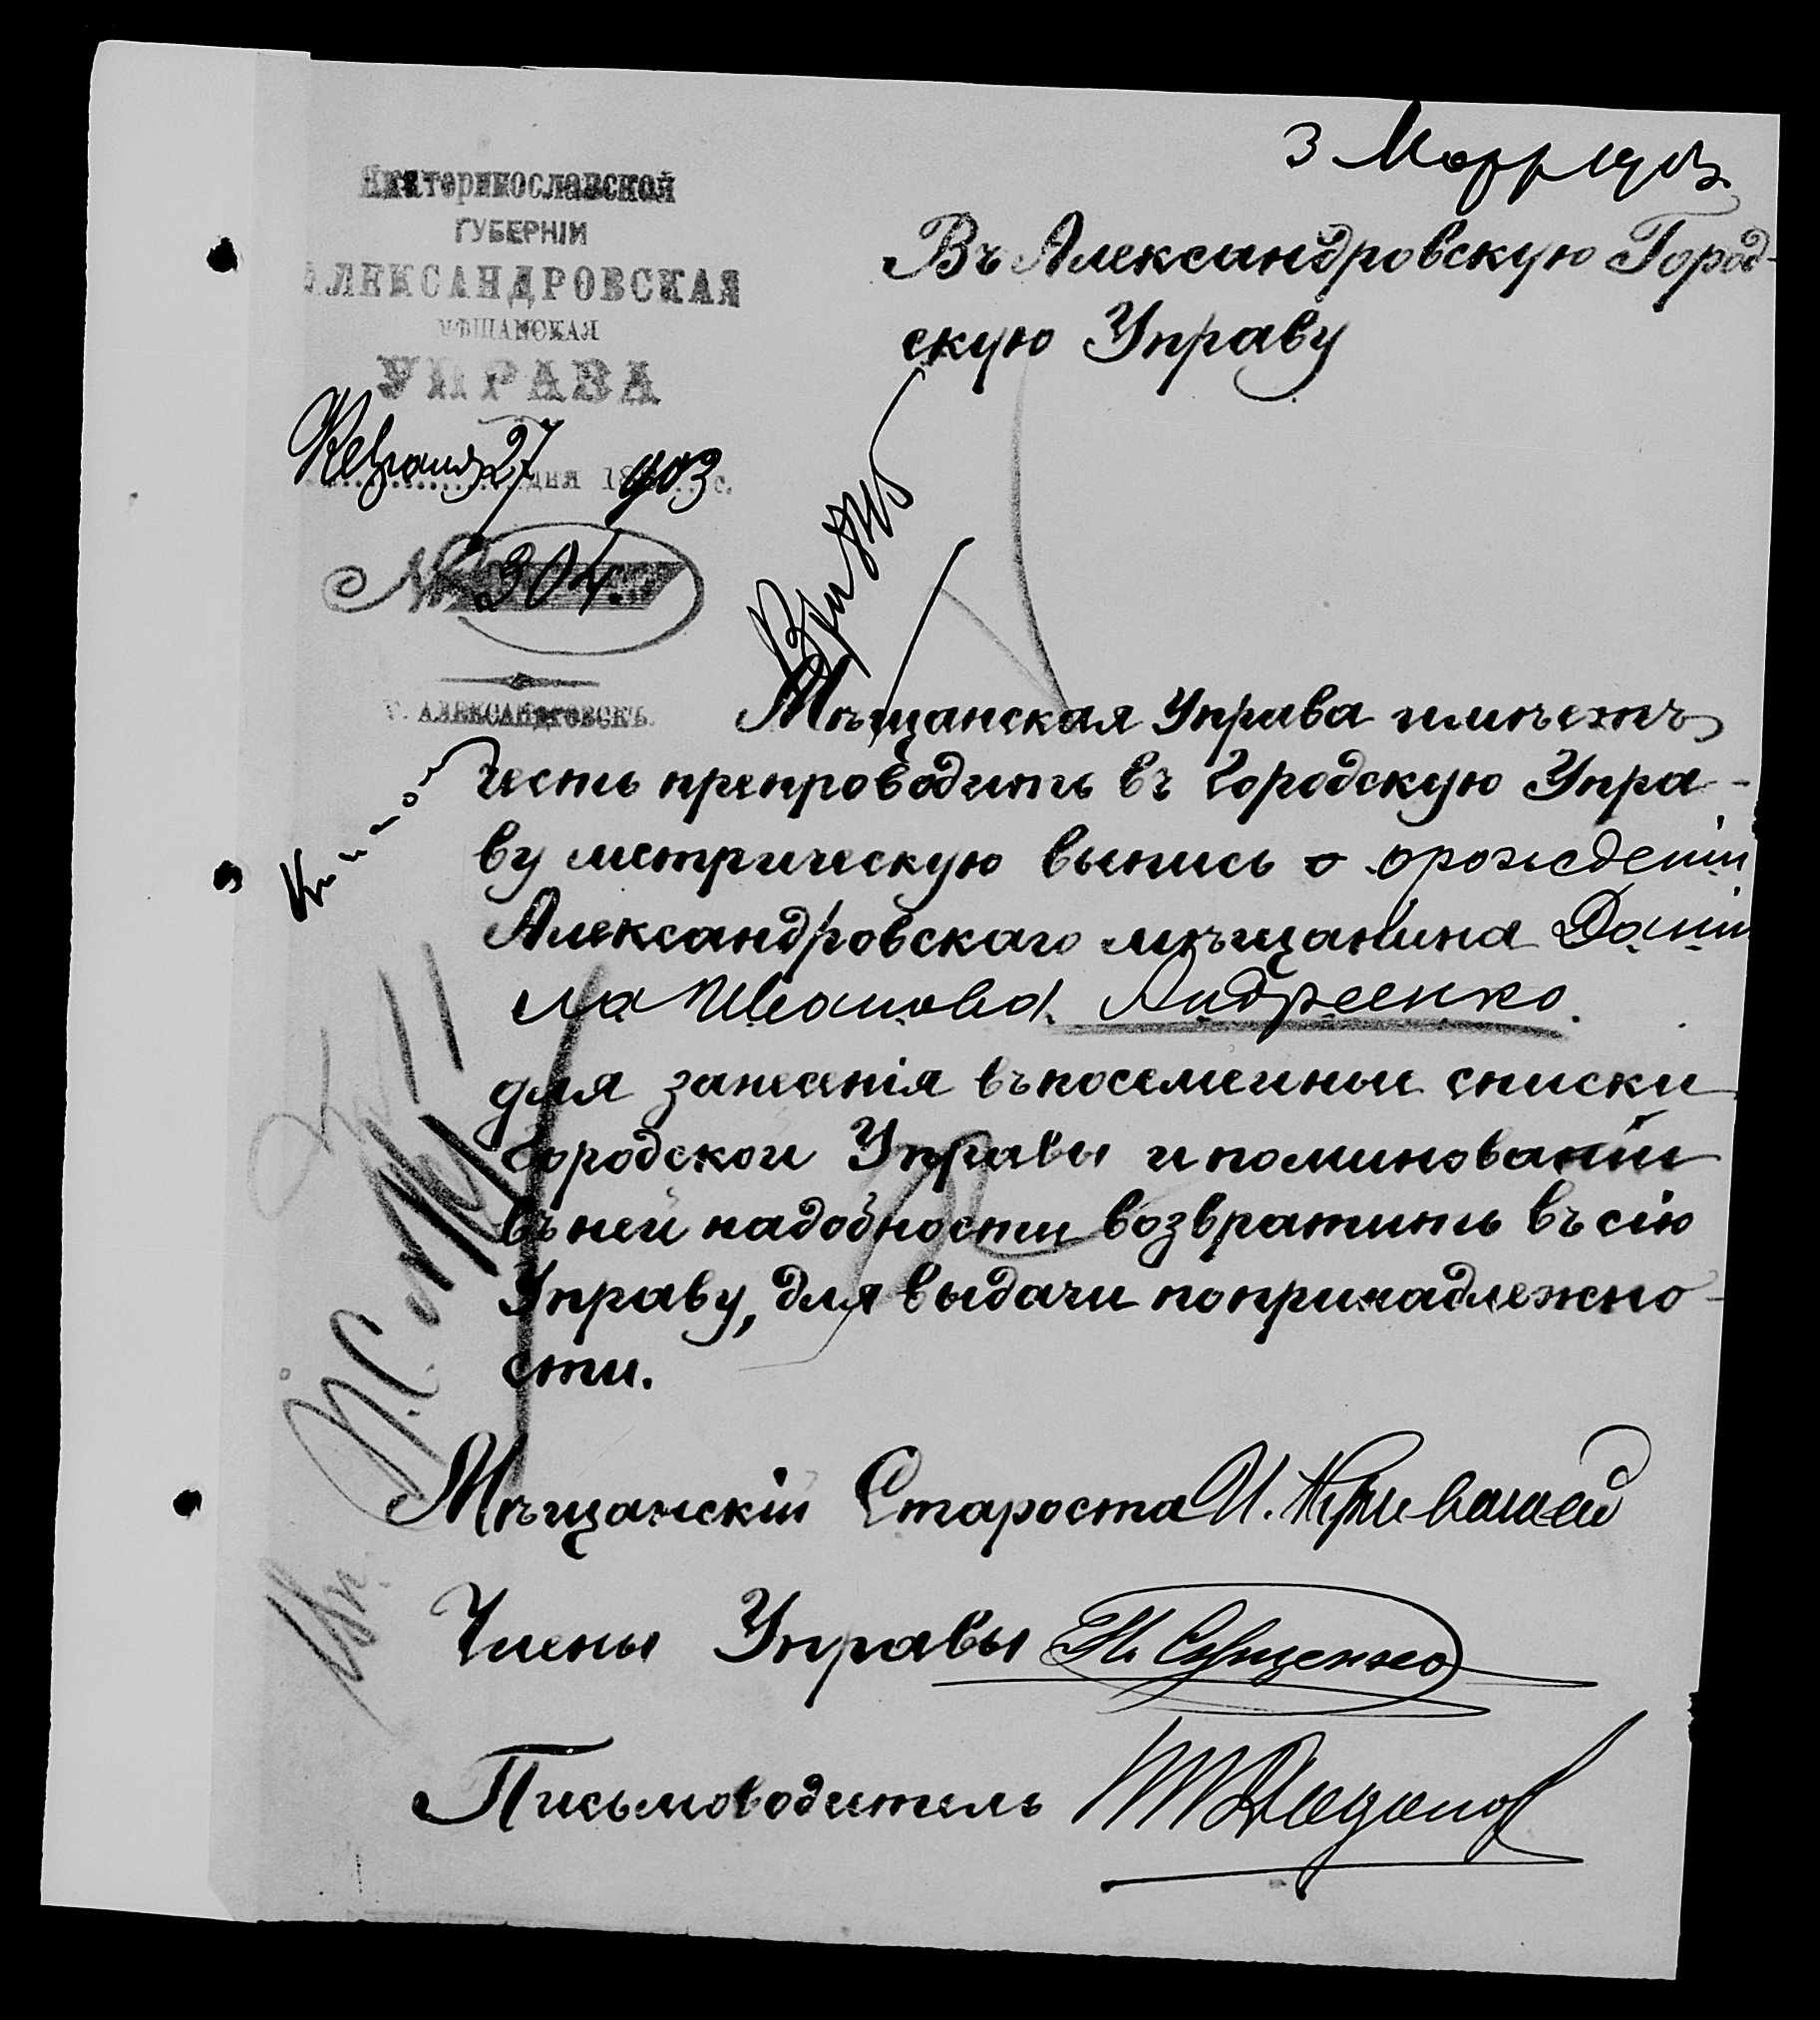 3 Мар 1903
Екатеринославской
ГУБЕРНІИ
АЛЕКСАНДРОВСКАЯ
МѢЩАНСКАЯ
УПРАВА
Февраля 27 дня 1903
№ 304.
Г. АЛЕКСАНДРОВСКЪ.
Въ Александровскую Город-
скую Управу
Мѣщанская Управа имѣетъ
честь препроводить въ Городскую Упра-
ву метрическую выпись о орожденіи
Александровскаго мѣщанина Даніи
ла Иванова Андреенко.
для занесенія въ посемейные списки
Городской Управы и поминованіи
въ ней надобности возвратить въ сію
Управу, для выдачи по принадлежно-
сти.
Мѣщанскій Староста И.
Члены Управы Н. Сущенко
Письмоводитель